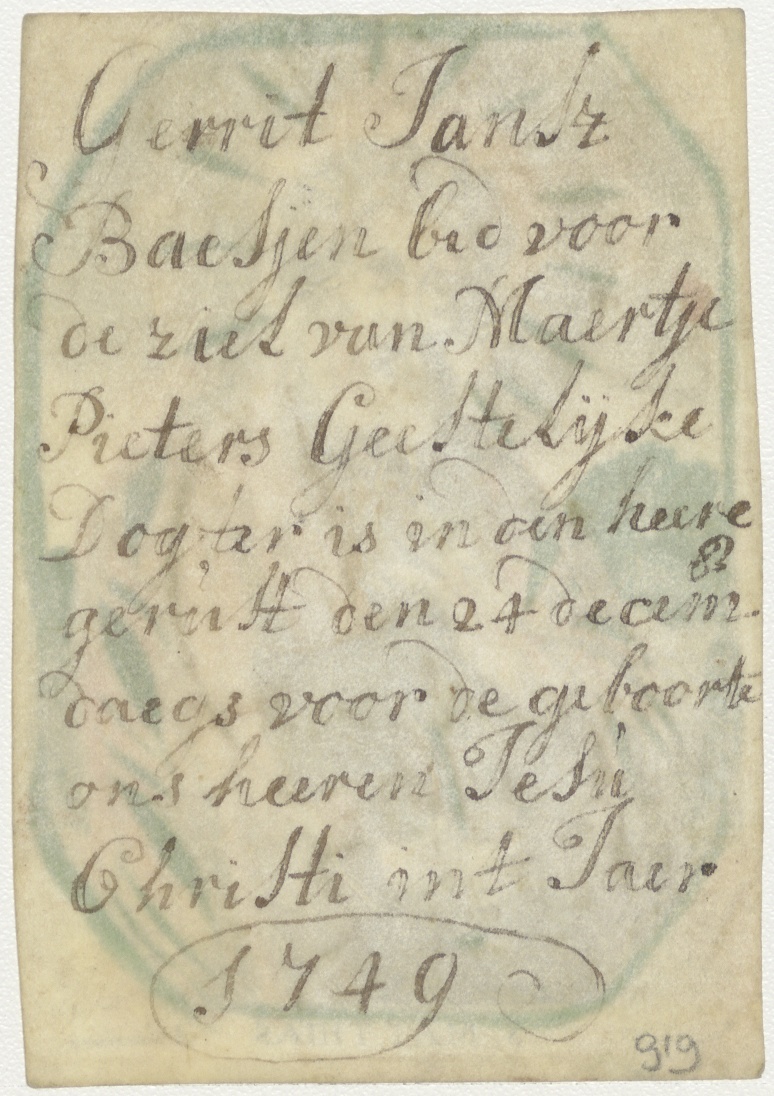 Gerrit Jansz
Baesjen bid voor
de ziel van Maertje
Pieters Geestelÿke
Dogter is in den heere
gerùst den 24 decem.
daegs voor de geboorte
ons heeren Jesù
Christi int Jaer
1749
919